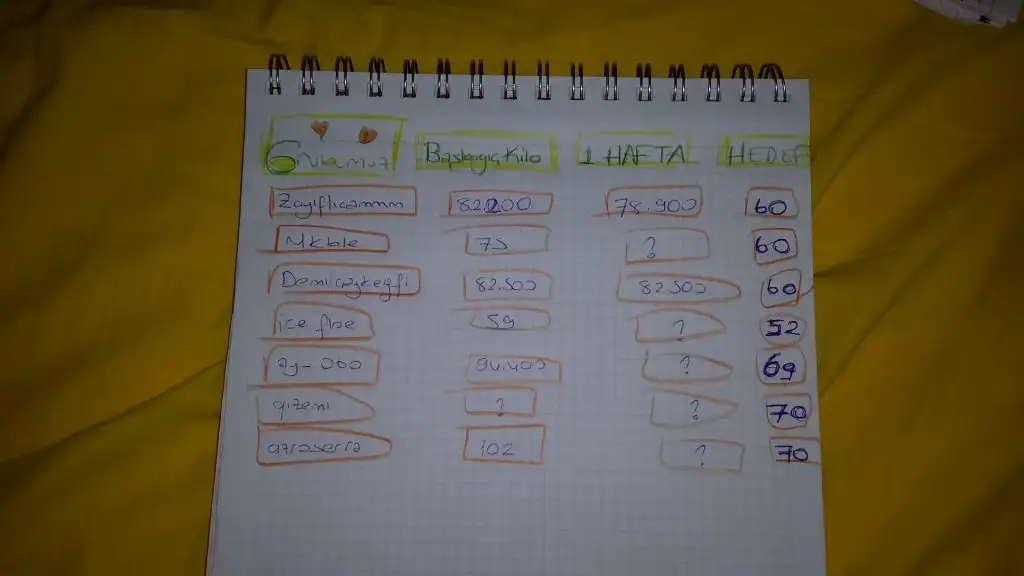 Başlangıç Kilo 1 HAFTA HEDEF
Zayıflıcammm 82.200 78.900 60
Mkble 75 ? 60
Demlicaykeyfi 82.500 82.500 60
ice fbe 59 ? 52
94.400 ? 69
gizemi ? ? 70
azraserra 102 ? 70